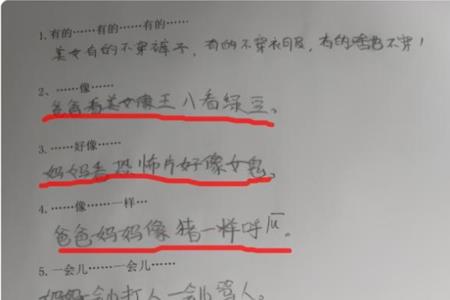 1.有的……有的……有的……
美女有的不穿裤子，有的不穿衣服，有的啥都不穿！
2、……像……
爸爸看美女像王八看绿豆。
3、……好像……
妈妈看恐怖片好像女鬼。
4、……像……一样…
爸爸妈妈像猪一样呼瓜。
5.一会儿……一会儿……
妈妈一会儿打人一会儿骂人。